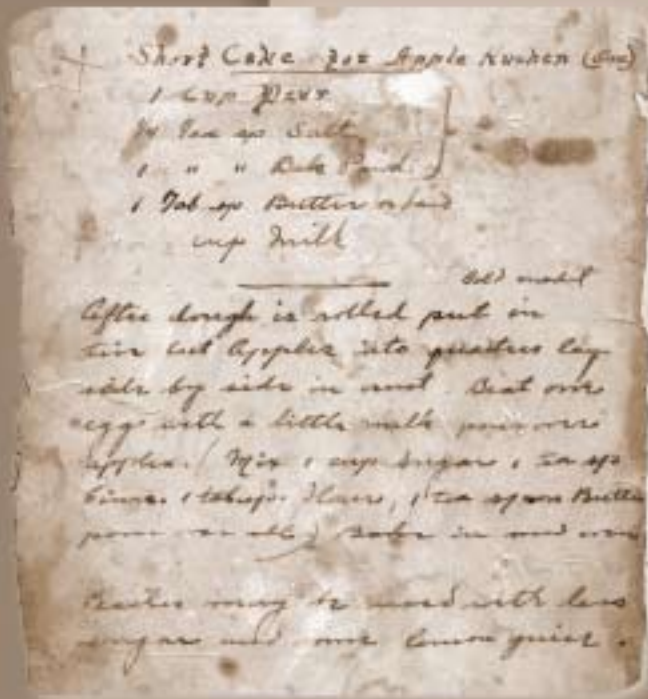 Short Cake for Apple Kuchen
1 Cup Flour
¼ Tea sp Salt
1 " " Bak Powd.
1 Tab sp Butter or Lard
cup Milk
After dough is rolled put in
tin cut Apples into quarters lay
side by side in Beat one
egg with a little milk pour over
apples. (Mix 1 cup Sugar 1 tea sp
1 tabsp. Flour, 1 tea spoon Butter
pour over all) Bake in
may be used with less
sugar and some lemon juice.